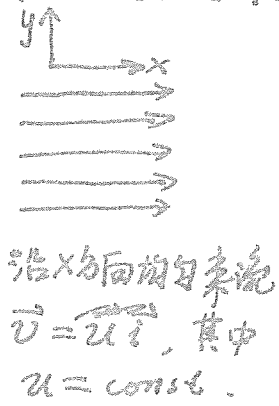 y
x
沿x方向均匀来流
\vec{v} = \vec{u i}, 其中
u = const.